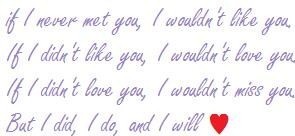 if I never met you, I wouldn't like you.
If I didn't like you, I wouldn't love you.
If I didn't love you, I wouldn't miss you.
But I did, I do, and I will